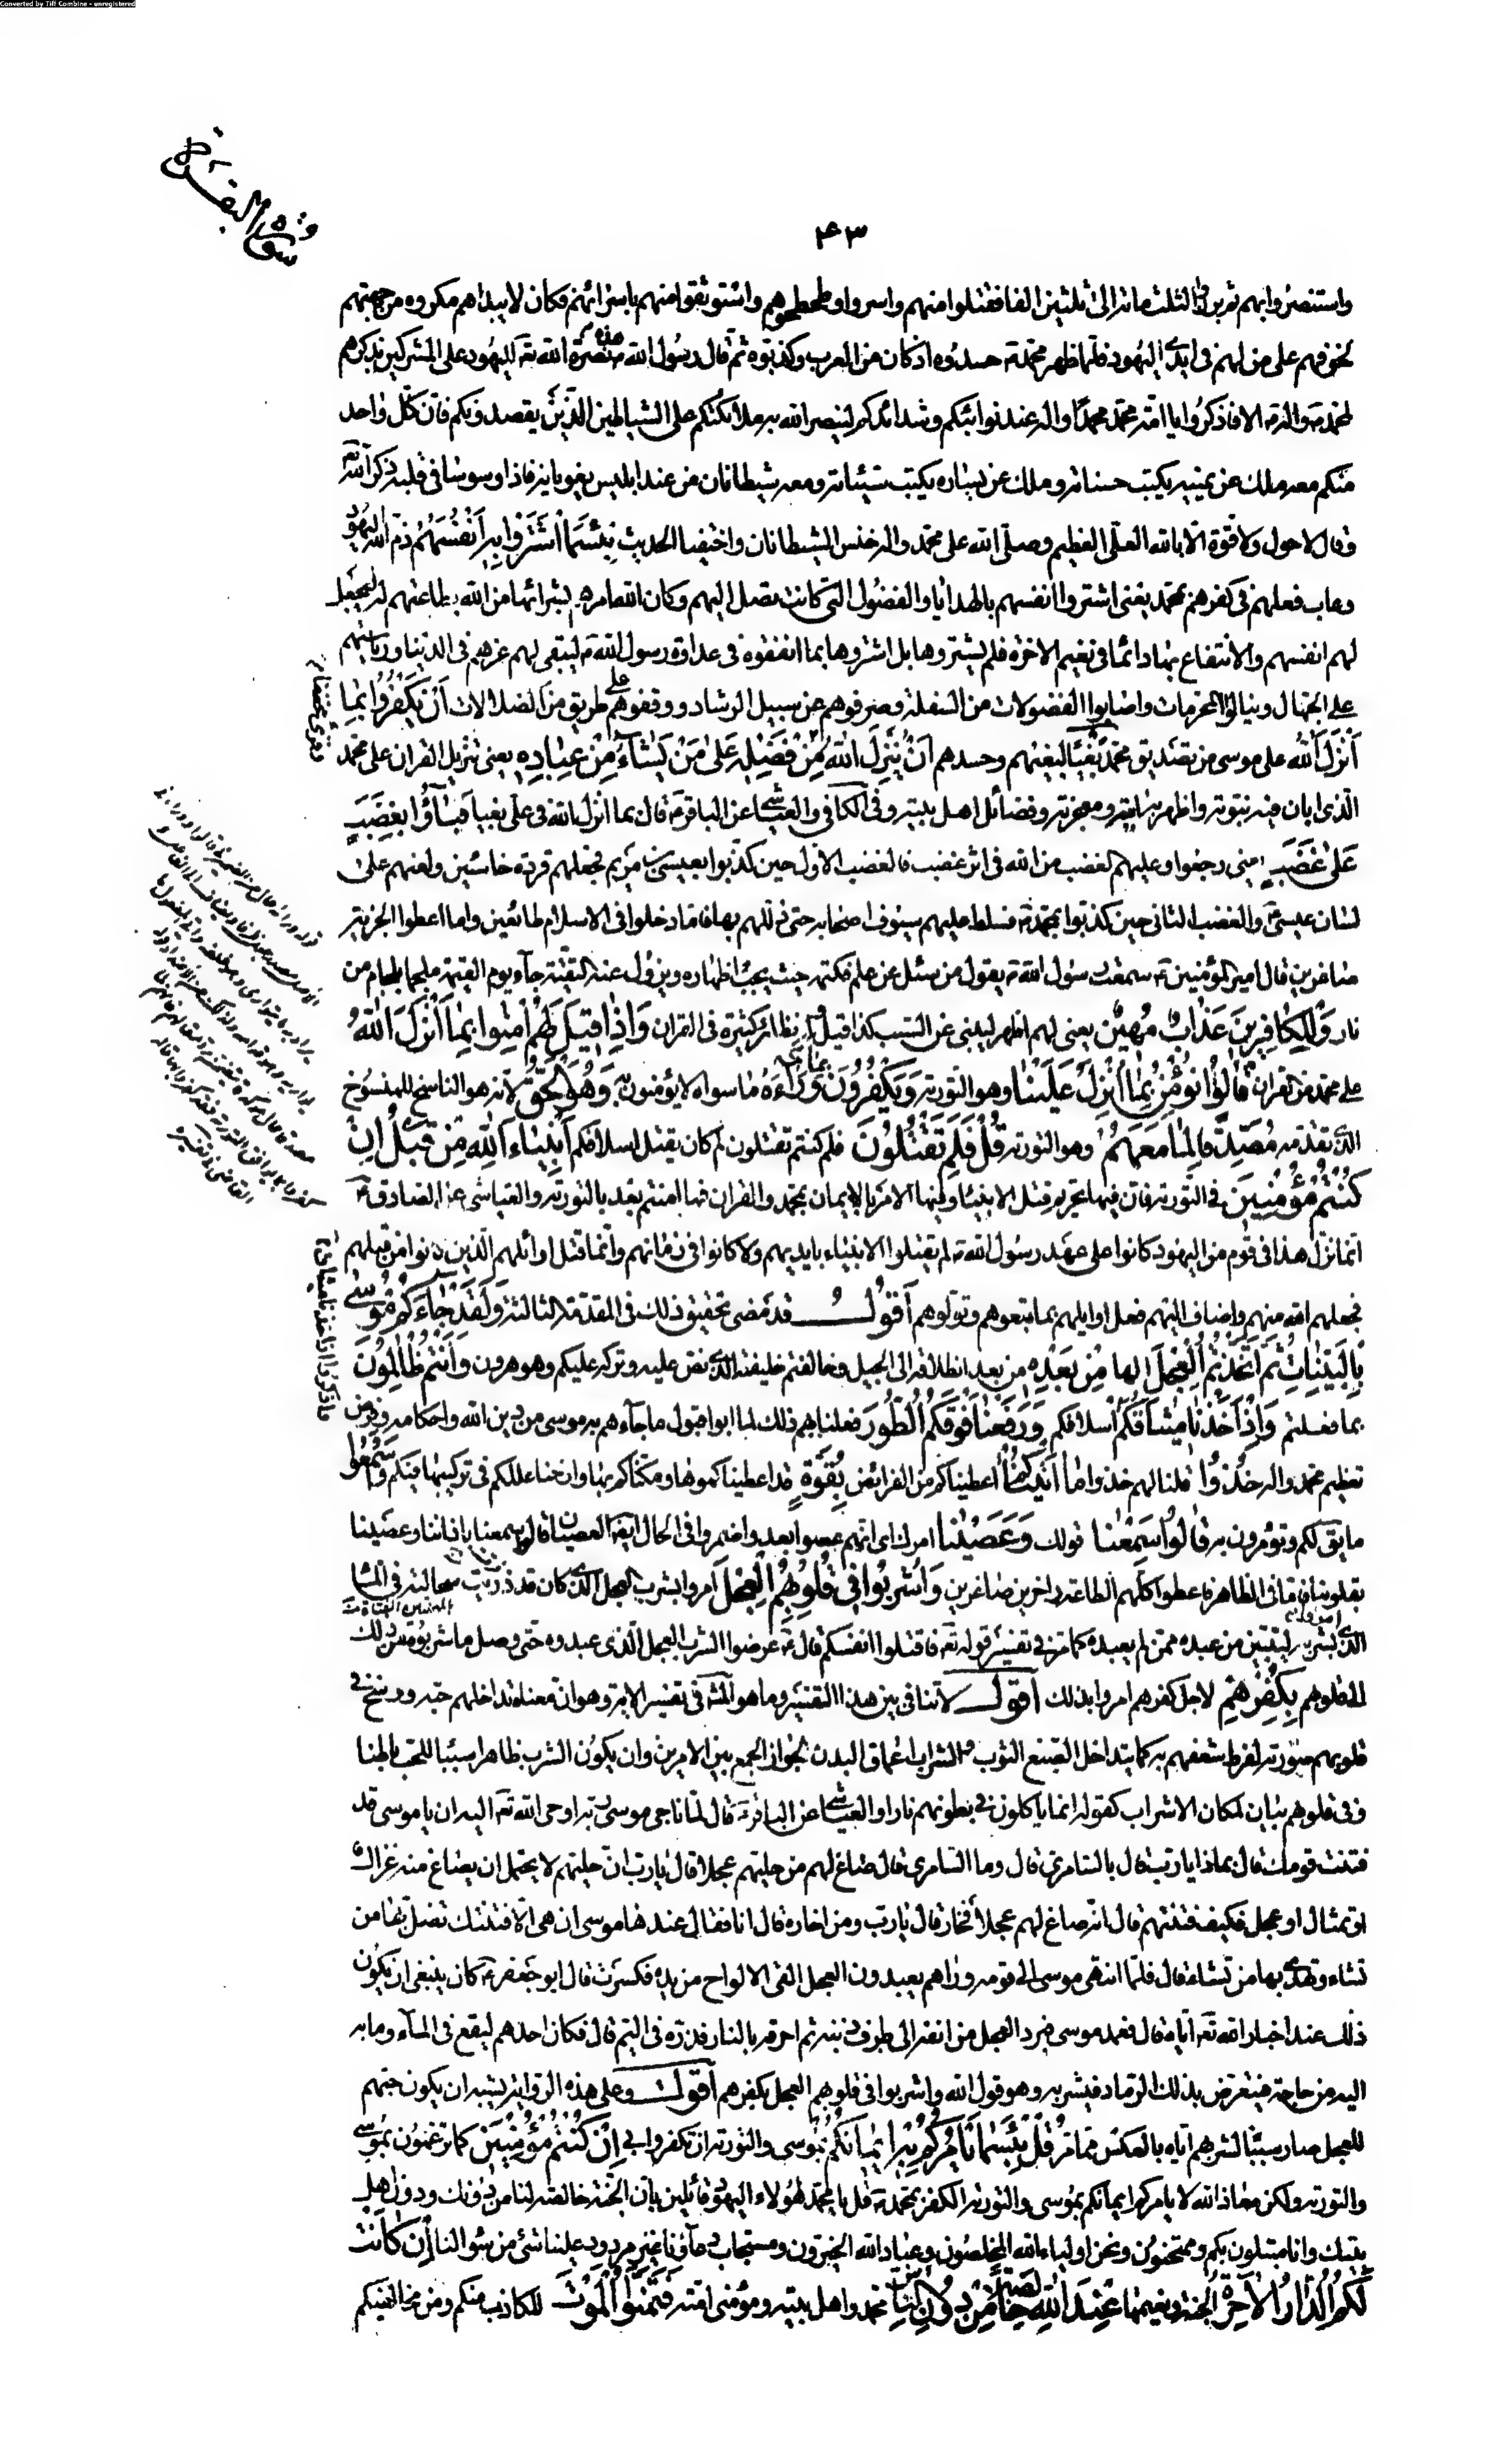 Converted by Tiff Combine - unregistered
سورة البقرة
۴۳
واستنصروا بهم قريش في الثلث مائة الى ثلثين الفا فقتلوا منهم واسروا وطحطحوهم واستوثقوا منهم باسرائهم فكان لا يبدأهم مكروه من جهتهم
لخوفهم على من لهم في ايدي اليهود فلما ظهر محمد ص حسدوه اذ كان من العرب وكذبوه ثم قال رسول الله ص هذه نصرة الله تعه لليهود على المشركين بذكرهم
لمحمد ص واله ص الا فاذكروا يا امة محمد محمدا واله عند نوائبكم وشدائدكم لينصر الله به ملائكتكم على الشياطين الذين يقصدونكم فان كل واحد
منكم معه ملك عن يمينه يكتب حسناته وملك عن يساره يكتب سيئاته ومعه شيطانان من عند ابليس يغويانه فاذا وسوسا في قلبه ذكر الله تعه
وقال لا حول ولا قوة الا بالله العلي العظيم وصلى الله على محمد واله خنس الشيطانان واختفيا الحديث بئسما اشتروا به انفسهم ذم الله اليهود
وعاب فعلهم في كفرهم بمحمد يعني اشتروا انفسهم بالهدايا والفضول التي كانت تصل اليهم وكان الله امرهم بشرائها من الله بطاعتهم له ليجعل
لهم انفسهم والانتفاع بها دائما في نعيم الاخرة فلم يشتروها بل اشتروها بما انفقوه في عداوة رسول الله ص ليبقى لهم عزهم في الدنيا ورياستهم
على الجهال وينالوا المحرمات واصابوا الفضولات من السفلة وصرفوهم عن سبيل الرشاد ووقفوهم على طريق من الضلالات ان يكفروا بما
انزل الله على موسى من تصديق محمد بغيا لبغيهم وحسدهم ان ينزل الله من فضله على من يشاء من عباده يعني تنزيل القران على محمد
الذي ابان فيه نبوته واظهر به ايته ومعجزته وفضائل اهل بيته وفي الكافي والعياشي عن الباقر ع قال بما انزل الله في علي بغيا فباؤا بغضب
على غضب يعني رجعوا وعليهم الغضب من الله في اثر غضب فالغضب الاول حين كذبوا بعيسى بن مريم فجعلهم قردة خاسئين ولعنهم على
لسان عيسى ع والغضب الثاني حين كذبوا بمحمد ص فسلط عليهم سيوف اصحابه حتى ذللهم بها فاما دخلوا في الاسلام طائعين واما اعطوا الجزية
صاغرين قال امير المؤمنين ع سمعت رسول الله ص يقول من سئل عن علم فكتمه حيث يجب اظهاره ويزول عنه التقية جاء يوم القيمة ملجما بلجام من
نار وللكافرين عذاب مهين يعني لهم اظهر لينبئ عن السبب كذا قيل وله نظائر كثيرة في القران واذا قيل لهم امنوا بما انزل الله
على محمد من القران قالوا نؤمن بما انزل علينا وهو التورية ويكفرون بما وراءه ما سواه لا يؤمنون به وهو الحق لانه هو الناسخ للمنسوخ
الذي تقدمه مصدقا لما معهم وهو التورية قل فلم تقتلون فلم كنتم تقتلون لم كان يقتل اسلافكم انبياء الله من قبل ان
كنتم مؤمنين في التورية فان فيها تحريم قتل الانبياء وفيها الامر بالايمان بمحمد والقران فما امنتم بعد بالتورية والعياشي عن الصادق ع
انما نزل هذا في قوم من اليهود كانوا على عهد رسول الله ص لم يقتلوا الانبياء بايديهم ولا كانوا في زمانهم وانما قتل اوائلهم الذين كانوا من قبلهم
فجعلهم الله منهم واضاف اليهم فعل اوايلهم بما تبعوهم وتولوهم اقول قد مضى تحقيق ذلك في المقدمة الثالثة ولقد جاءكم موسى
بالبينات ثم اتخذتم العجل الها من بعده من بعد انطلاقه الى الجبل وخالفتم خليفته الذي نص عليه وتركه عليكم وهو هرون وانتم ظالمون
بما فعلتم واذ اخذنا ميثاقكم اسلافكم ورفعنا فوقكم الطور فعلنا بهم ذلك لما ابوا قبول ما جاءهم به موسى من دين الله واحكامه وفرض
تعظيم محمد واله خذوا قلنا لهم خذوا ما اتيناكم اعطيناكم من الفرائض بقوة قد اعطيناكموها ومكناكم بها وازحنا عللكم في تركيبها فيكم واسمعوا
ما يق لكم وتؤمرون به قالوا سمعنا قولك وعصينا امرك اي انهم عصوا بعد واضمروا في الحال ايضا العصيان قالوا سمعنا باذاننا وعصينا
بقلوبنا فاما في الظاهر فاعطوا كلهم الطاعة داخرين صاغرين واشربوا في قلوبهم العجل امروا بشرب العجل الذي كان قد ذريت سحالته في الماء
الذي امروا بشربه ليتبين من عبده ممن لم يعبده كما مر في تفسير قوله تعه فاقتلوا انفسكم قال ع عرضوا لشرب العجل الذي عبدوه حتى وصل ما شربوه من ذلك
الى قلوبهم بكفرهم لاجل كفرهم امروا بذلك اقول لا تنافي بين هذا التفسير وما هو المش في تفسير الاية وهو ان معناه تداخلهم حبه ورسخ في
قلوبهم صورته لفرط شعفهم به كما يتداخل الصبغ الثوب والشراب اعماق البدن لجواز الجمع بين الامرين وان يكون الشرب ظاهرا سببا للحب باطنا
وفي قلوبهم بيان لمكان الاشراب كقوله انما ياكلون في بطونهم نارا والعياشي عن الباقر ع قال لما ناجى موسى ربه اوحى الله تعه اليه ان يا موسى قد
فتنت قومك قال بماذا يا رب قال بالسامري قال وما السامري قال صاغ لهم من حليهم عجلا قال يا رب ان حليهم لا يحتمل ان يصاغ منه غزال
او تمثال او عجل فكيف فتنتهم قال انه صاغ لهم عجلا فخار قال يا رب ومن اخاره قال انا فقال عندها موسى ان هي الا فتنتك تضل بها من
تشاء وتهدي بها من تشاء قال فلما انتهى موسى الى قومه وراهم يعبدون العجل القى الالواح من يده فكسرت قال ابو جعفر ع كان ينبغي ان يكون
ذلك عند اخبار الله تعه اياه قال فعمد موسى فبرد العجل من انفه الى طرف ذنبه ثم احرقه بالنار فذره في اليم قال فكان احدهم ليقع في الماء وما به
اليه من حاجة فيتعرض بذلك الرماد فيشربه وهو قول الله واشربوا في قلوبهم العجل بكفرهم اقول وعلى هذه الرواية يشبه ان يكون حبهم
للعجل صار سببا لشربهم اياه بالعكس مما مر قل بئسما يامركم به ايمانكم بموسى والتورية ان تكفروا بي ان كنتم مؤمنين كما تزعمون بموسى
والتورية ولكن معاذ الله لا يامركم ايمانكم بموسى والتورية الكفر بمحمد ص قل يا محمد لهؤلاء اليهود قائلين بان الجنة خالصة لنا من دونك ودون اهل
بيتك وانا مبتلون بكم وممتحنون ونحن اولياء الله المخلصون وعباد الله الخيرون ومستجاب دعاؤنا غير مردود علينا شئ من سؤالنا ان كانت
لكم الدار الاخرة الجنة ونعيمها عند الله خالصة من دون الناس محمد واهل بيته ومؤمني امته فتمنوا الموت للكاذب منكم ومن مخالفيكم